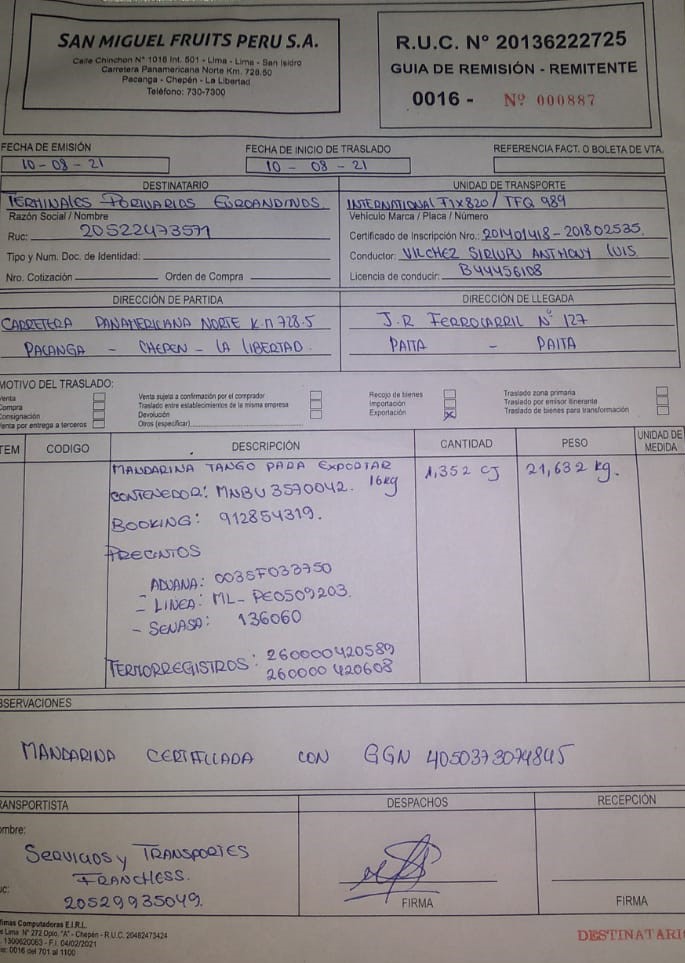 SAN MIGUEL FRUITS PERU S.A.
Calle Chinchon N° 1016 Int. 501 - Lima - Lima - San Isidro
Carretera Panamericana Norte Km. 728.50
Pacanga - Chepén - La Libertad
Teléfono: 730-7300
R.U.C. N° 20136222725
GUIA DE REMISIÓN - REMITENTE
0016 - Nº 000887
FECHA DE EMISIÓN
10-08-21
FECHA DE INICIO DE TRASLADO
10-08-21
REFERENCIA FACT. O BOLETA DE VTA.
DESTINATARIO
TERMINALES PORTUARIOS EUROANDINOS
Razón Social / Nombre
Ruc: 20522473571
Tipo y Num. Doc. de Identidad:
Nro. Cotización Orden de Compra
UNIDAD DE TRANSPORTE
INTERNATIONAL 71X820 / TFQ 989
Vehículo Marca / Placa / Número
Certificado de Inscripción Nro.: 201401418-201802535
Conductor: VILCHEZ SIRLUPU ANTHONY LUIS
Licencia de conducir: B44456108
DIRECCIÓN DE PARTIDA
CARRETERA PANAMERICANA NORTE K.M 728.5
PACANGA - CHEPEN - LA LIBERTAD.
DIRECCIÓN DE LLEGADA
J.R FERROCARRIL N° 127
PAITA - PAITA
MOTIVO DEL TRASLADO:
Venta
Compra
Consignación
Venta por entrega a terceros
Venta sujeta a confirmación por el comprador
Traslado entre establecimientos de la misma empresa
Devolución
Otros (especificar)
Recojo de bienes
Importación
Exportación X
Traslado zona primaria
Traslado por emisor itinerante
Traslado de bienes para transformación
TEM CODIGO DESCRIPCIÓN CANTIDAD PESO UNIDAD DE MEDIDA
MANDARINA TANGO PARA EXPORTAR 1,352 CJ 21,632 kg.
16kg
CONTENEDOR: MNBU 3570042.
BOOKING: 912854319.
PRECINTOS
ADUANA: 0035F033750
- LINEA: ML-PE0509203.
- SENASA: 136060
TERMORREGISTROS: 260000420589
260000420608
BSERVACIONES
MANDARINA CERTIFICADA CON GGN 4050373074845
RANSPORTISTA
ombre:
SERVICIOS y TRANSPORTES
FRANCHESS.
uc: 20529935049.
DESPACHOS
FIRMA
RECEPCIÓN
FIRMA
fimas Computadoras E.I.R.L.
Lima N° 272 Dpto. "A" - Chepén - R.U.C. 20482473424
1300620063 - F.I. 04/02/2021
0016 del 701 al 1100
DESTINATARI